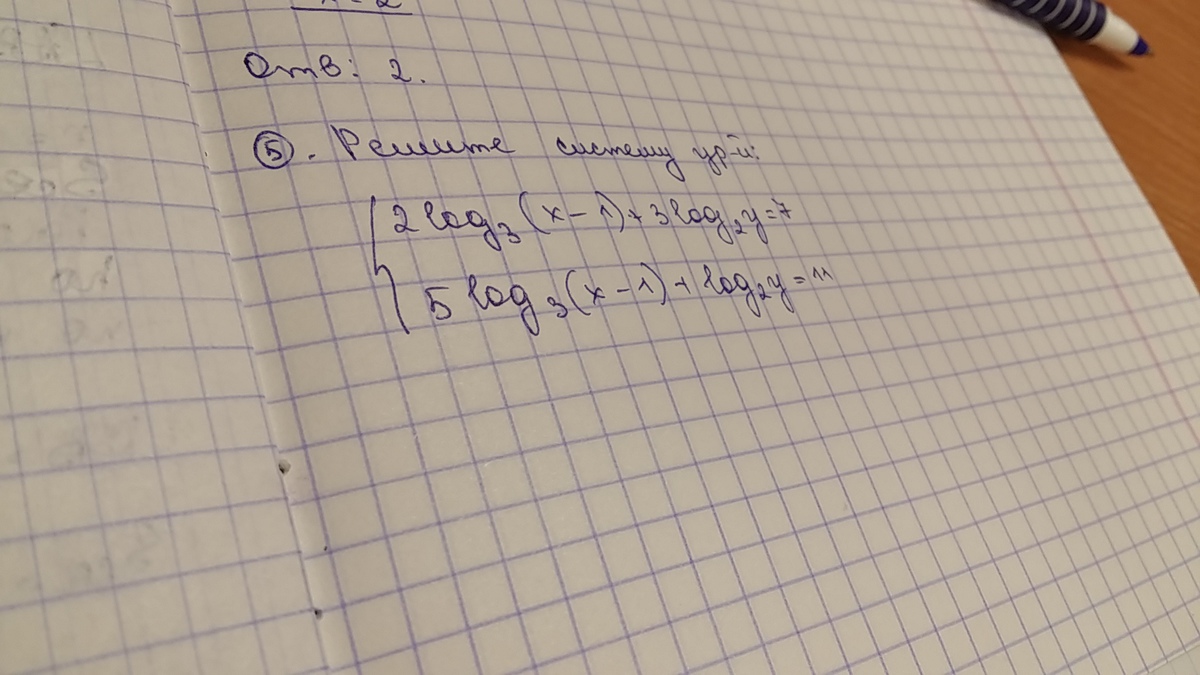 Отв: 2.
5. Решите систему ур-й:
2 log₃(x-1)+3log₂y=7
5 log₃(x-1)+log₂y=11